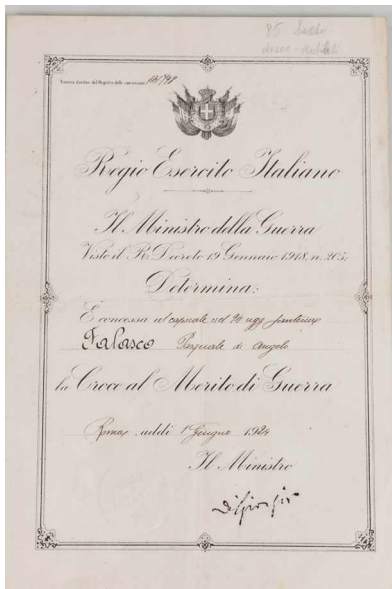 85
Numero d'ordine del Registro delle concessioni
Regio Esercito Italiano
Il Ministro della Guerra
Visto il R. Decreto 19 Gennaio 1918, n. 205;
Determina:
È concessa al caporale nel 24 regg fanteria
Falasco Pasquale di Angelo
la Croce al Merito di Guerra
Roma addì 1 Giugno 1924
Il Ministro
Di Giorgio